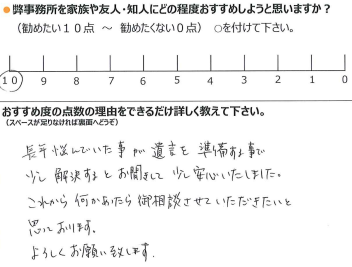 ●弊事務所を家族や友人・知人にどの程度おすすめしようと思いますか？
（勧めたい１０点　～　勧めたくない０点）　○を付けて下さい。
10 9 8 7 6 5 4 3 2 1 0
おすすめ度の点数の理由をできるだけ詳しく教えて下さい。
（スペースが足りなければ裏面へどうぞ）
長年悩んでいた事が遺言を準備する事で
少し解決するとお聞きして少し安心いたしました。
これから何かあったら御相談させていただきたいと
思っております。
よろしくお願い致します.